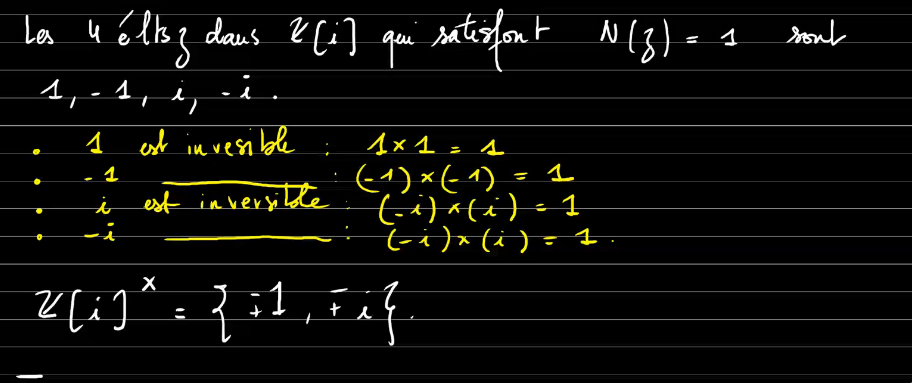 Les 4 élts z dans ℤ[i] qui satisfont N(z) = 1 sont
1, -1, i, -i.
• 1 est invesible : 1 × 1 = 1
• -1 ________ : (-1) × (-1) = 1
• i est inversible : (-i) × (i) = 1
• -i ________ : (-i) × (i) = 1.
ℤ[i]^× = {∓1, ∓i}.